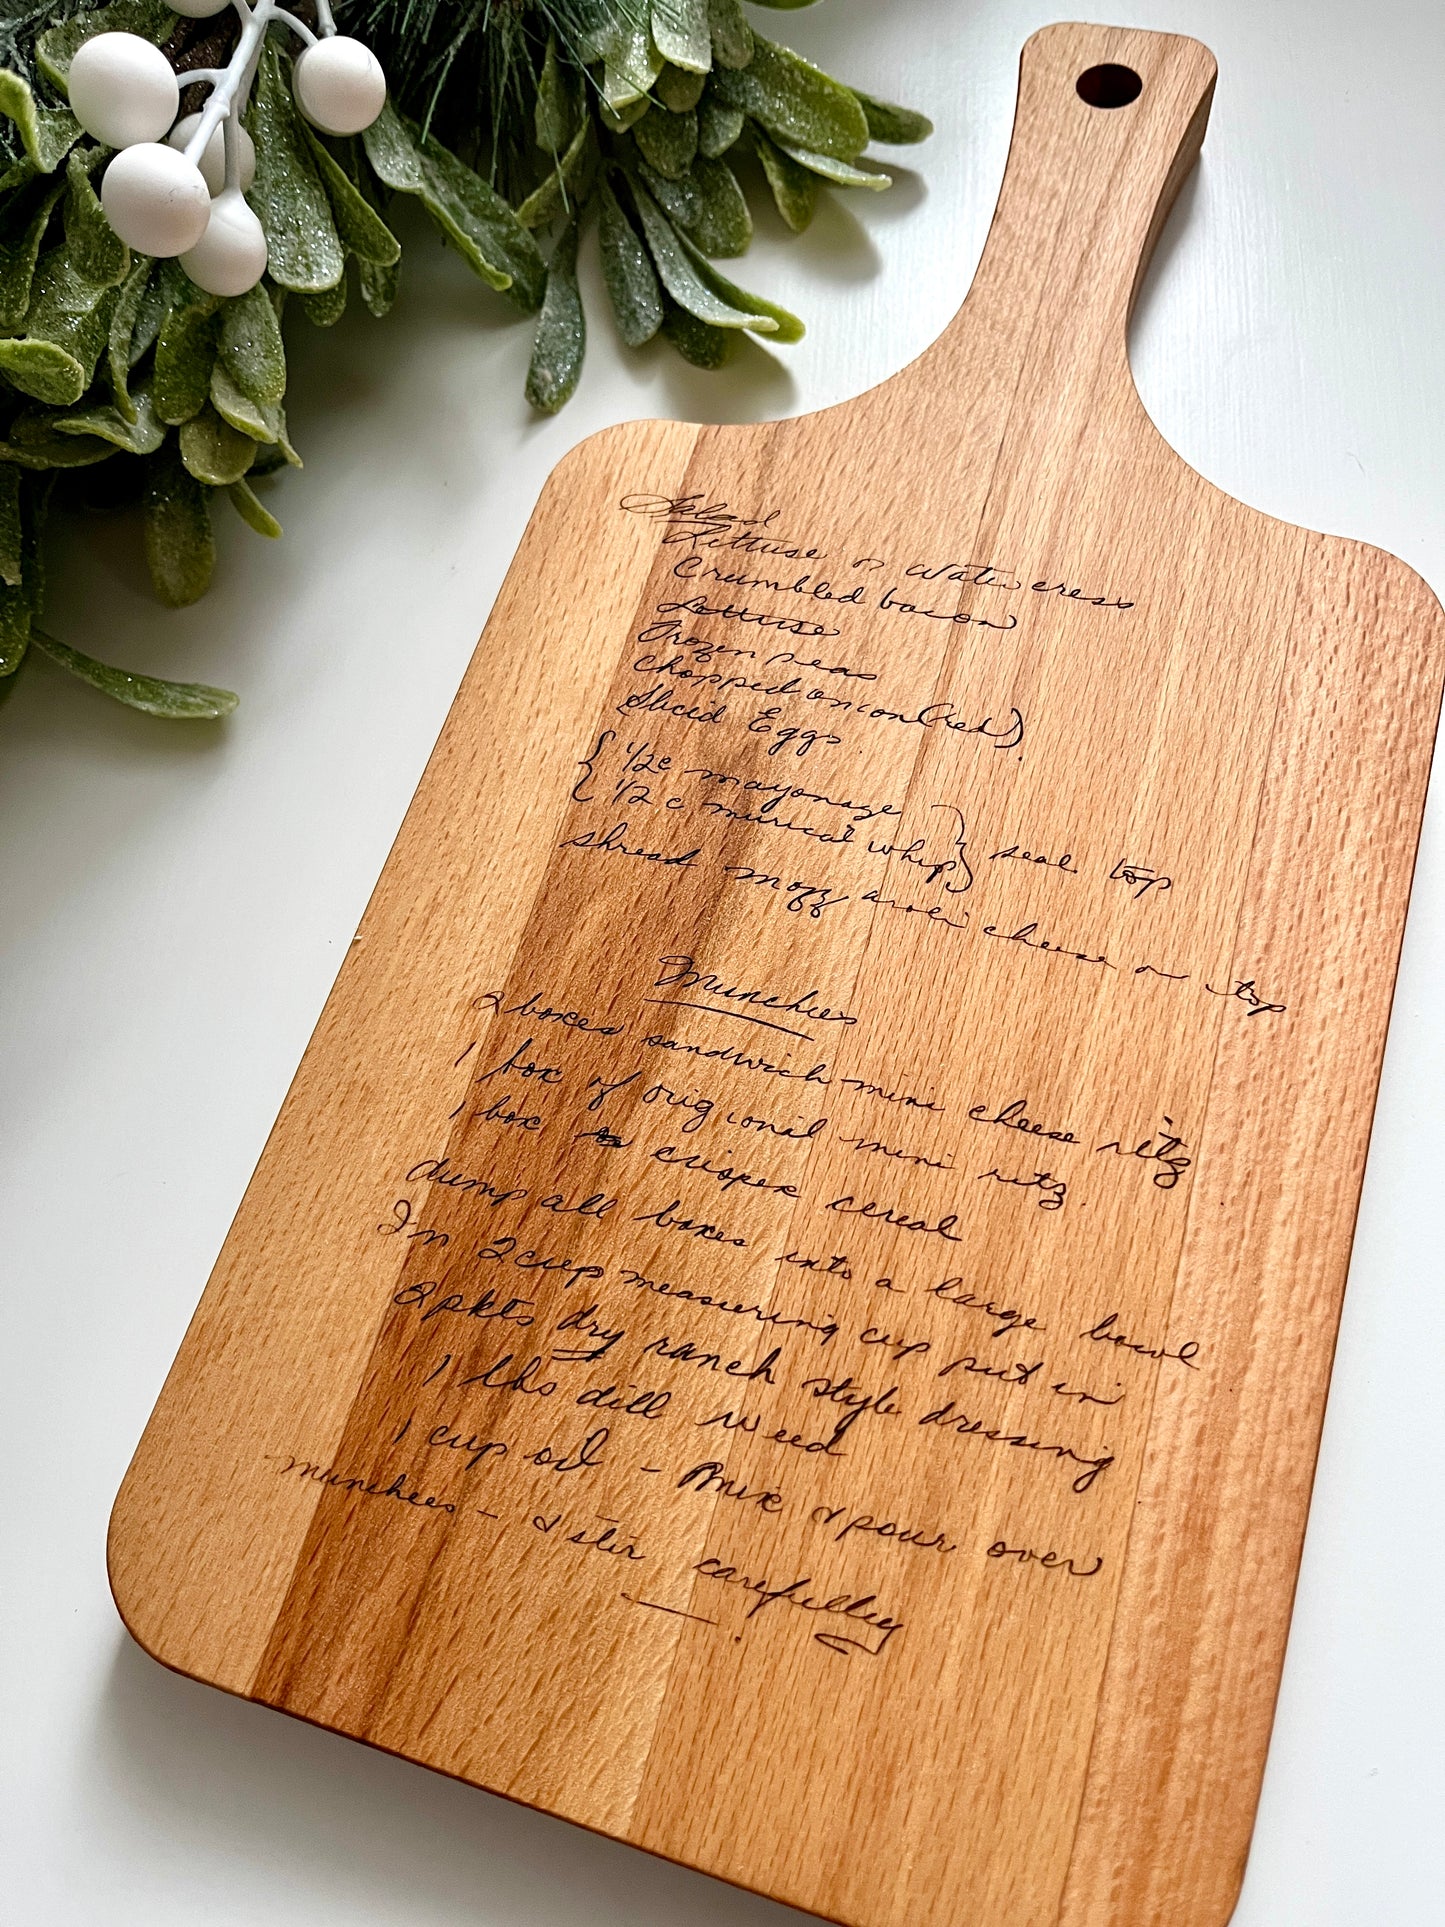 Salad
Lettuse or Watercress
Crumbled bacon
Lettuse
Frozen peas
Chopped onion (red).
Sliced Eggs.
{ 1/2 c mayonaze } seal top
{ 1/2 c mirical whip }
shread mozz areli cheese on top
Munchees
2 boxes sandwich mini cheese ritz
1 box of origional mini ritz.
1 box crispex cereal
dump all boxes into a large bowl
In 2 cup measuring cup put in
2 pkts dry ranch style dressing
1 lbs dill weed
1 cup oil - Mix & pour over
munchees - & stir carefulley